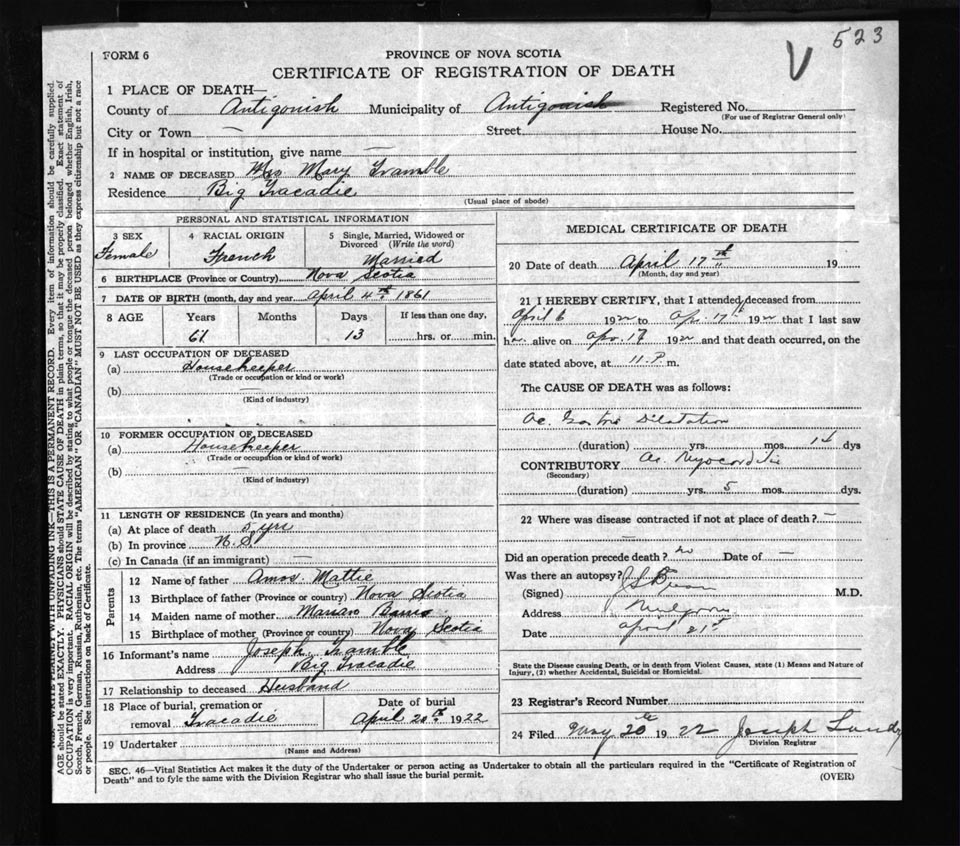 523
V
FORM 6
PROVINCE OF NOVA SCOTIA
CERTIFICATE OF REGISTRATION OF DEATH
1 PLACE OF DEATH—
County of Antigonish Municipality of Antigonish Registered No.
(For use of Registrar General only)
City or Town — Street House No.
If in hospital or institution, give name —
2 NAME OF DECEASED Mrs Mary Tramble
Residence Big Tracadie
(Usual place of abode)
PERSONAL AND STATISTICAL INFORMATION
3 SEX
Female
4 RACIAL ORIGIN
French
5 Single, Married, Widowed or
Divorced (Write the word)
Married
6 BIRTHPLACE (Province or Country) Nova Scotia
7 DATE OF BIRTH (month, day and year April 4th 1861
8 AGE Years Months Days If less than one day,
61 13 hrs. or min.
9 LAST OCCUPATION OF DECEASED
(a) Housekeeper
(Trade or occupation or kind or work)
(b)
(Kind of industry)
10 FORMER OCCUPATION OF DECEASED
(a) Housekeeper
(Trade or occupation or kind of work)
(b)
(Kind of industry)
11 LENGTH OF RESIDENCE (In years and months)
(a) At place of death 5 yrs
(b) In province N.S.
(c) In Canada (if an immigrant) —
Parents
12 Name of father Amos Mattie
13 Birthplace of father (Province or country) Nova Scotia
14 Maiden name of mother
15 Birthplace of mother (Province or country) Nova Scotia
16 Informant's name Joseph Tramble
Address Big Tracadie
17 Relationship to deceased Husband
18 Place of burial, cremation or
removal Tracadie
Date of burial
April 20th 1922
19 Undertaker
(Name and Address)
MEDICAL CERTIFICATE OF DEATH
20 Date of death April 17th 19
(Month, day and year)
21 I HEREBY CERTIFY, that I attended deceased from
April 6 1922 to Apr. 17th 1922 that I last saw
her alive on Apr. 17 1922 and that death occurred, on the
date stated above, at 11 P. m.
The CAUSE OF DEATH was as follows:
Ac. Gastric Dilatation
(duration) yrs. mos. 14 dys
CONTRIBUTORY Ac. Myocarditis
(Secondary)
(duration) yrs. 5 mos. dys.
22 Where was disease contracted if not at place of death? —
Did an operation precede death? no Date of —
Was there an autopsy?
(Signed) M.D.
Address Mulgrave
Date April 21st
State the Disease causing Death, or in death from Violent Causes, state (1) Means and Nature of
Injury, (2) whether Accidental, Suicidal or Homicidal.
23 Registrar's Record Number
24 Filed May 20th 1922 Joseph Landry
Division Registrar
SEC. 46—Vital Statistics Act makes it the duty of the Undertaker or person acting as Undertaker to obtain all the particulars required in the "Certificate of Registration of
Death" and to fyle the same with the Division Registrar who shall issue the burial permit. (OVER)
WRITE PLAINLY WITH UNFADING INK—THIS IS A PERMANENT RECORD. Every item of information should be carefully supplied.
AGE should be stated EXACTLY. PHYSICIANS should STATE CAUSE OF DEATH in plain terms, so that it may be properly classified. Exact statement of
OCCUPATION is very important. RACIAL ORIGIN will be described by stating to what people or tongue the deceased person belonged whether English, Irish,
Scotch, French, German, Russian, Ruthenian, etc. The terms "AMERICAN" OR "CANADIAN" MUST NOT BE USED as they express citizenship but not a race
or people. See instructions on back of Certificate.